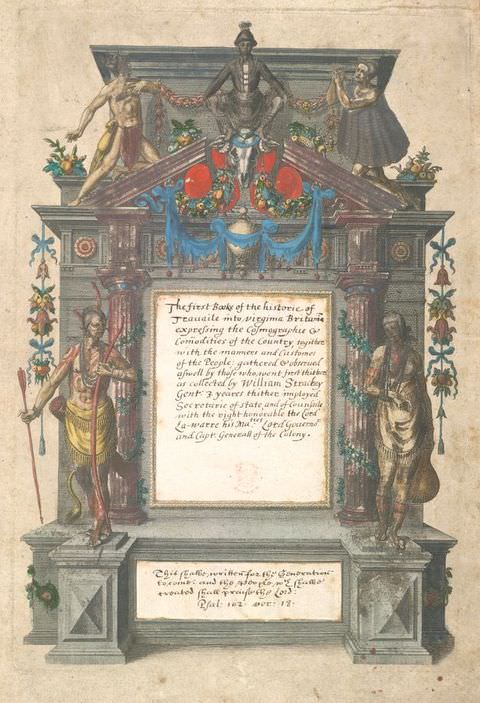 The first Booke of the historie of
Travaile into Virginia Britania
expressing the Cosmographie &
Comodities of the Country, togither
with the manners and Customes
of the People: gathered & obserued
aswell by those who went first thither
as collected by William Strachey
Gent: 3 yeares thither imployed
Secretarie of state, and of Counsaile
with the right honorable the Lord
La-warre his Maties Lord Gouernor
and Capt: Generall of the Colony.
This shalbe written for the Generation
to come: and the People, wch shalbe
created shall praise the Lord:
Psal: 102. ver: 18.